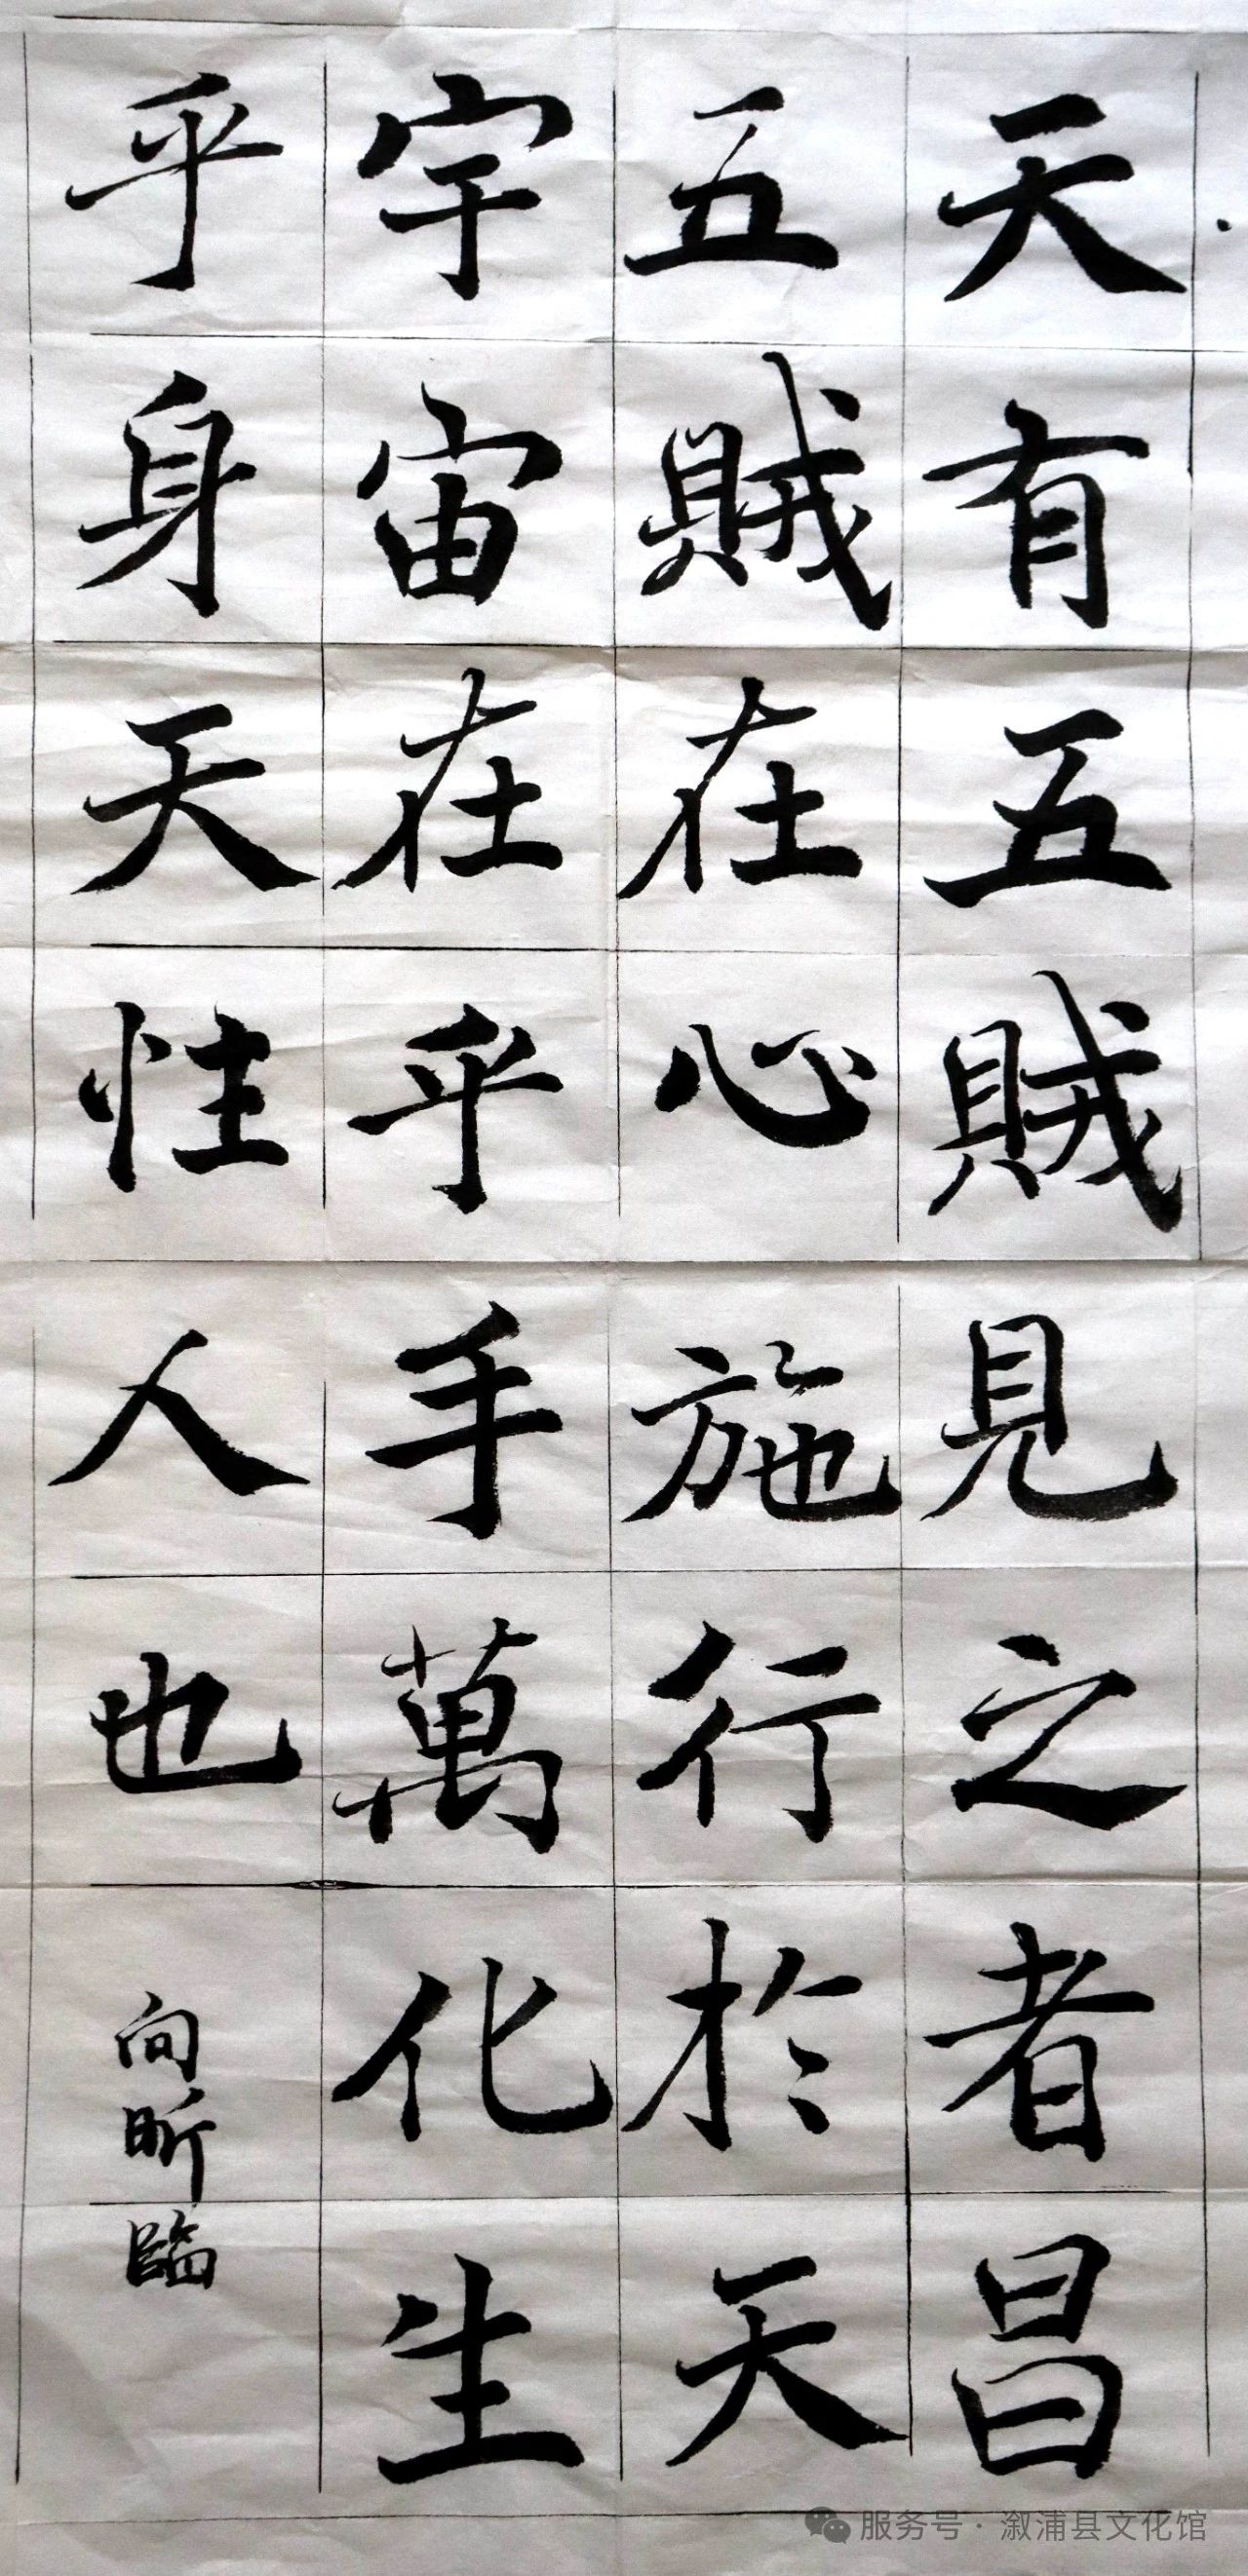 天有五賊見之者昌
五賊在心施行於天
宇宙在乎手萬化生
乎身天性人也
向昕臨
服务号·溆浦县文化馆